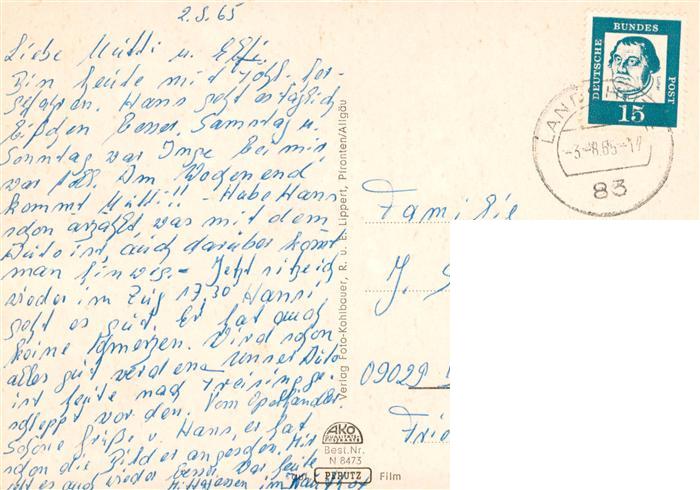 2.8.65
Liebe Mutti u. Elfi.
Bin heute mit
gefahren. Hans geht es täglich
bißchen besser. Samstag u.
Sonntag war Inge bei mir
war toll. Am Wochenend
kommt Mutti!! - Habe Hans
schon erzählt was mit dem
Auto ist, auch darüber kommt
man hinweg - Jetzt sitze ich
wieder im Zug 17.30 Hansi
geht es gut. Er hat auch
keine Schmerzen. Wird schon
alles gut werden. Unser Auto
ist heute nach Freising ge-
schleppt worden. Vom Opelhändler
Schöne Grüße v. Hans, er hat
schon die Bilder angesehen. Mir
geht es auch wieder besser. War heute
Mittagessen im
DEUTSCHE BUNDES POST
15
-3.-8.65-17
83
Familie
J.
09029
Verlag Foto-Kohlbauer, R. u. E. Lippert, Pfronten/Allgäu
AKO
QUALITÄTS
Best.Nr.
N 8473
auf PERUTZ Film